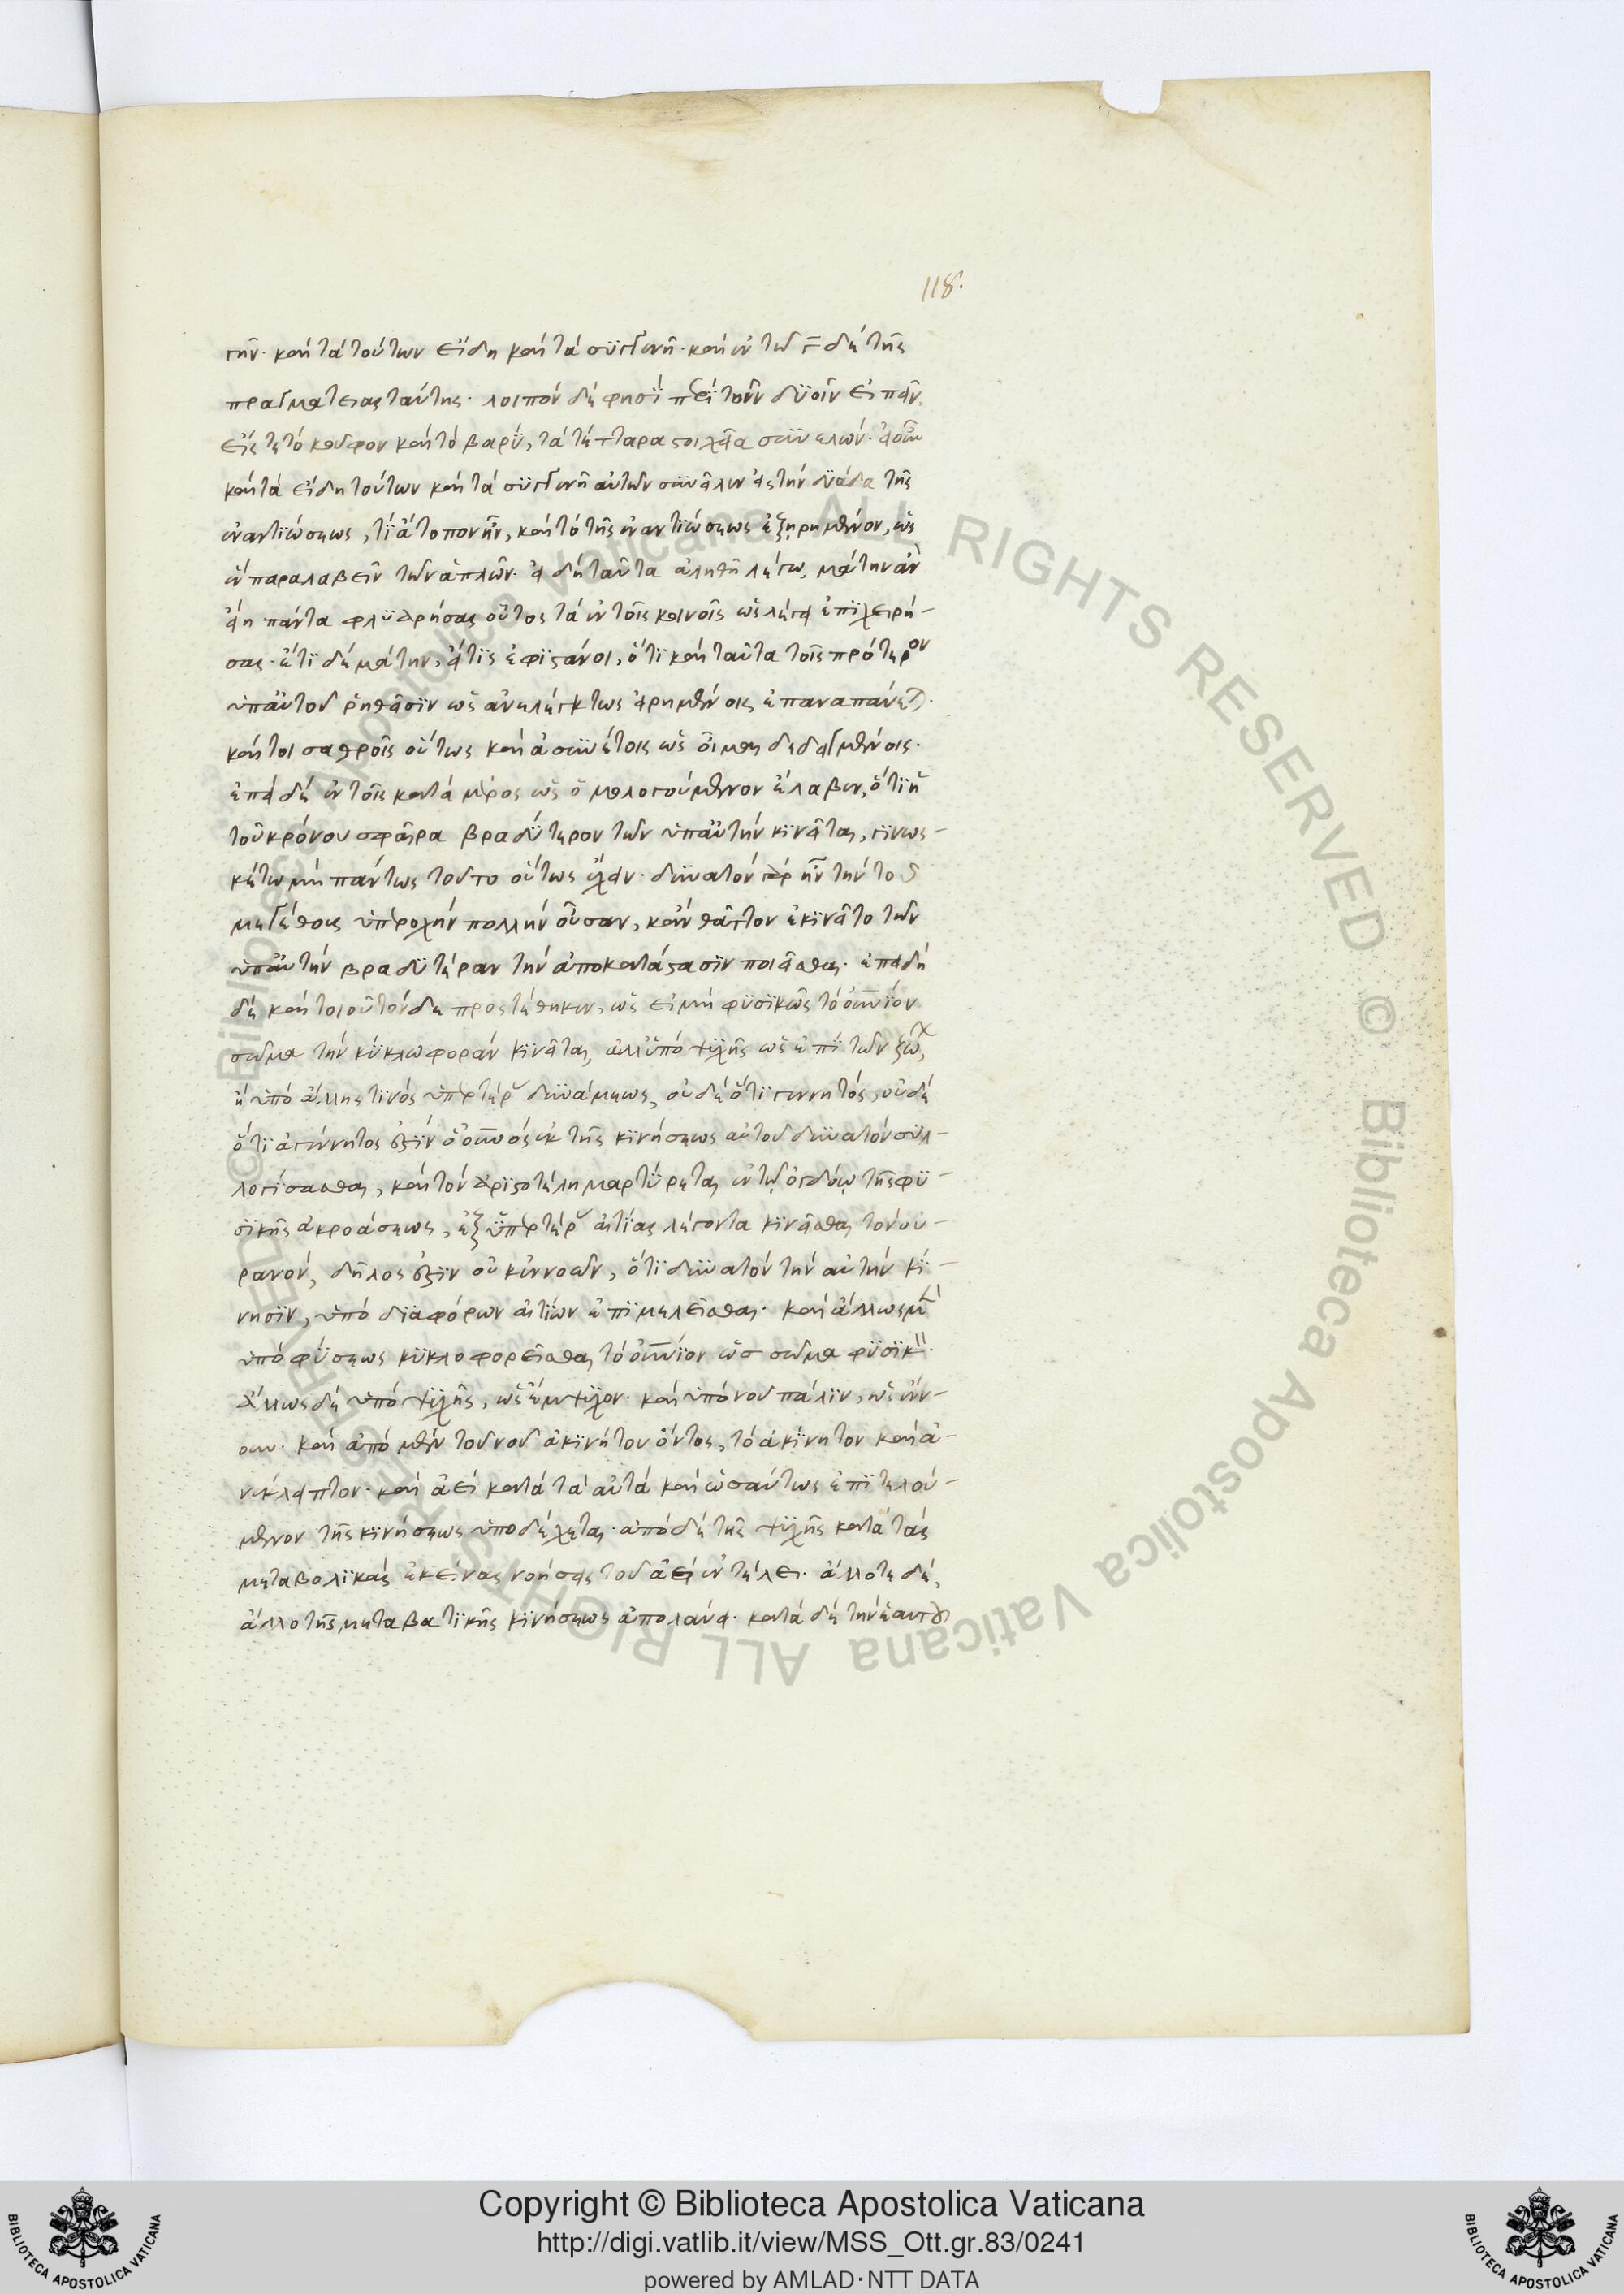 118.
γῆν· καὶ τὰ τούτων εἴδη καὶ τὰ συγγενῆ· καὶ ἐν τῷ γ̄ δὲ τῆς
πραγματείας ταύτης· λοιπὸν δέ φησϊ περὶ τοῖν δυοῖν εἰπεῖν.
εἰς τε τὸ κοῦφον καὶ τὸ βαρὺ, τὰ τέτταρα στοιχεῖα συνελών·
καὶ τὰ εἴδη τούτων καὶ τὰ συγγενῆ αὐτῶν συνελεῖν εἰς τὴν δυάδα τῆς
ἐναντιώσεως, τί ἄτοπον ἦν, καὶ τὸ τῆς ἐναντιώσεως ἐξῃρημένον, ὡς
ἓν παραλαβεῖν τῶν ἁπλῶν· εἰ δὲ ταῦτα ἀληθῆ λέγω, μάτην ἂν
εἴη πάντα φλυαρήσας οὗτος τὰ ἐν τοῖς κοινοῖς ὡς λέγει ἐπιχειρή-
σας· ἔτι δὲ μάτην, εἴ τις ἐφιστάνοι, ὅτι καὶ ταῦτα τοῖς πρότερον
ὑπ' αὐτοῦ ῥηθεῖσιν ὡς ἀνελέγκτως εἰρημένοις ἐπαναπαύεται.
καίτοι σαθροῖς οὕτως καὶ ἀσυνέτοις ὡς οἶμαι δεδειγμένοις.
ἐπεὶ δὲ ἐν τοῖς κατὰ μέρος ὡς ὁμολογούμενον ἔλαβεν, ὅτι ἡ
τοῦ κρόνου σφαῖρα βραδύτερον τῶν ὑπ' αὐτὴν κινεῖται, γινωσ-
κέτω μὴ πάντως τοῦτο οὕτως ἔχειν· δυνατὸν γὰρ ἦν τὴν τοῦ
μεγέθους ὑπεροχὴν πολλὴν οὖσαν, κἂν θᾶττον ἐκινεῖτο τῶν
ὑπ' αὐτὴν βραδυτέραν τὴν ἀποκατάστασιν ποιεῖσθαι· ἐπειδὴ
δὲ καὶ τοιοῦτόν δε προστέθηκεν, ὡς εἰ μὴ φυσικῶς τὸ οὐνιον
σῶμα τὴν κύκλῳ φορὰν κινεῖται, ἀλλ' ὑπὸ ψυχῆς ὡς ἐπὶ τῶν ζῴων,
ἢ ὑπὸ ἄλλης τινὸς ὑπερτέρας δυνάμεως, οὐδὲ ὅτι γεννητὸς, οὐδὲ
ὅτι ἀγέννητος ἐστὶν ὁ οὐνος ἐκ τῆς κινήσεως αὐτοῦ δυνατὸν συλ-
λογίσασθαι, καὶ τὸν ἀριστοτέλη μαρτύρεται ἐν τῷ ὀγδόῳ τῆς φυ-
σικῆς ἀκροάσεως, ἐξ ὑπερτέρας αἰτίας λέγοντα κινεῖσθαι τὸν οὐ-
ρανόν, δῆλος ἐστὶν οὐκ ἐννοῶν, ὅτι δυνατὸν τὴν αὐτὴν κί-
νησιν, ὑπὸ διαφόρων αἰτίων ἐπιμελεῖσθαι· καὶ ἄλλως μὲν
ὑπὸ φύσεως κυκλοφορεῖσθαι τὸ οὐνιον ὡς σῶμα φυσικόν.
ἄλλως δὲ ὑπὸ ψυχῆς, ὡς ἔμψυχον· καὶ ὑπὸ νοῦ πάλιν, ὡς ἔν-
νουν· καὶ ἀπὸ μὲν τοῦ νοῦ ἀκινήτου ὄντος, τὸ ἀκίνητον καὶ ἀ-
νέκλειπτον· καὶ ἀεὶ κατὰ τὰ αὐτὰ καὶ ὡσαύτως ἐπιτελού-
μενον τῆς κινήσεως ὑποδέχεται· ἀπὸ δὲ τῆς ψυχῆς κατὰ τὰς
μεταβολικὰς ἐκείνας νοήσεις τοῦ ἀεὶ ἐν τέλει· ἄλλοτε δὲ,
ἄλλο τῆς μεταβατικῆς κινήσεως ἀπολαύει· κατὰ δὲ τὴν ἑαυτοῦ
© Biblioteca Apostolica Vaticana ALL RIGHTS RESERVED © Biblioteca Apostolica Vaticana ALL RIGHTS RESERVED
Copyright © Biblioteca Apostolica Vaticana
http://digi.vatlib.it/view/MSS_Ott.gr.83/0241
powered by AMLAD·NTT DATA
BIBLIOTECA APOSTOLICA VATICANA
BIBLIOTECA APOSTOLICA VATICANA